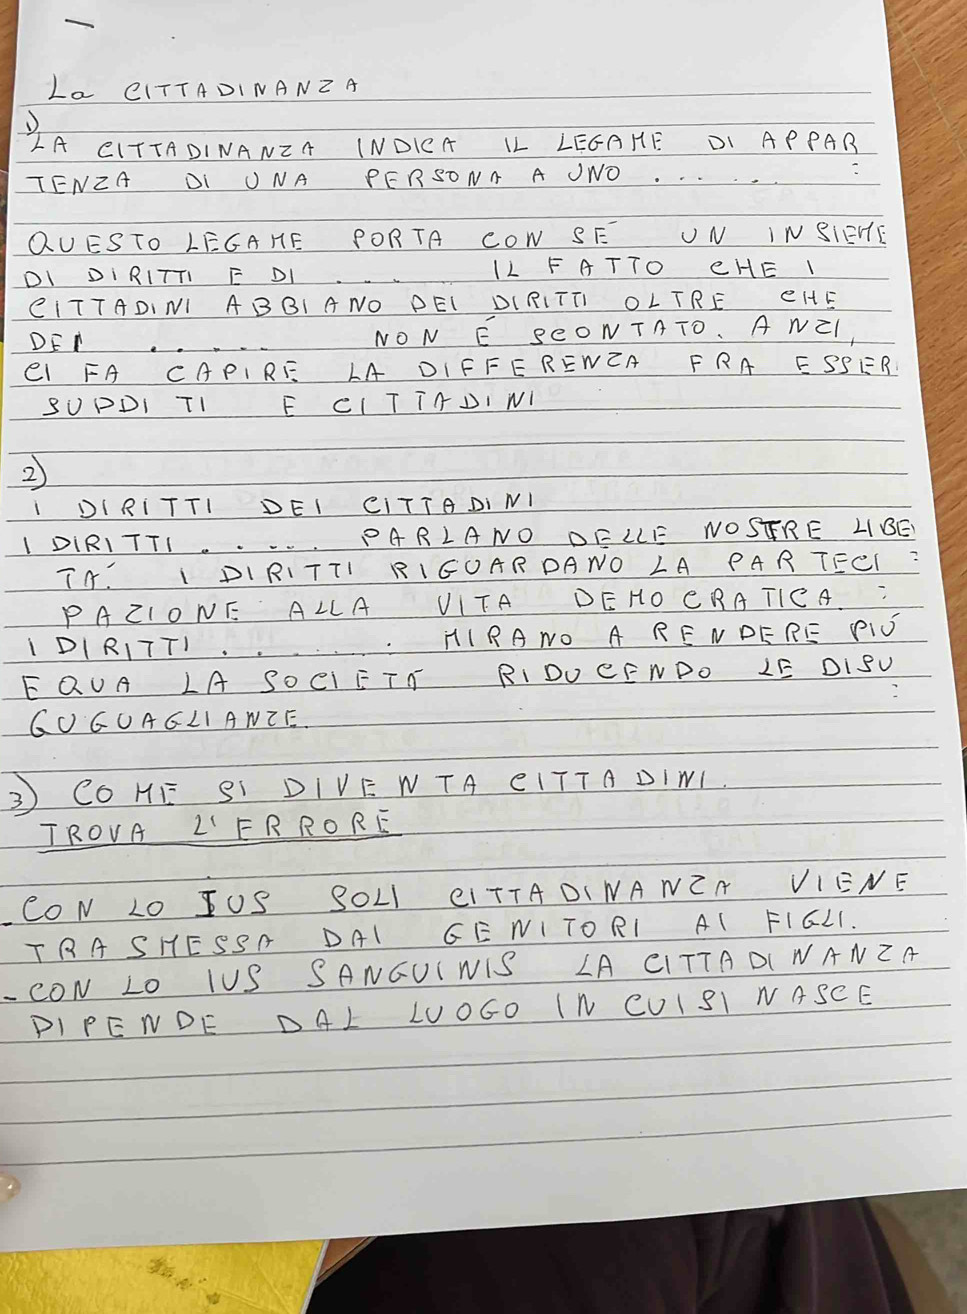 La CITTADINANZA
1)
LA CITTADINANZA INDICA IL LEGAME DI APPAR
TENZA DI UNA PERSONA A UNO ...... :
QUESTO LEGAME PORTA CON SÉ UN INSIEME
DI DIRITTI E DI .... IL FATTO CHE I
CITTADINI ABBIANO DEI DIRITTI OLTRE CHE
DEI ...... NON É SCONTATO. ANZI,
CI FA CAPIRE LA DIFFERENZA FRA ESSER
SUDDITI E CITTADINI
2)
I DIRITTI DEI CITTADINI
I DIRITTI ...... PARLANO DELLE NOSTRE LIBE
TÁ. I DIRITTI RIGUARDANO LA PARTECI :
PAZIONE ALLA VITA DEMOCRATICA. :
I DIRITTI ........ MIRANO A RENDERE PIÚ
EQUA LA SOCIETÁ RIDUCENDO LE DISU
GUGUAGLIANZE. :
3) COME SI DIVENTA CITTADINI.
TROVA L'ERRORE
- CON LO IUS SOLI CITTADINANZA VIENE
TRASMESSA DAI GENITORI AI FIGLI.
- CON LO IUS SANGUINIS LA CITTADINANZA
DIPENDE DAL LUOGO IN CUI SI NASCE